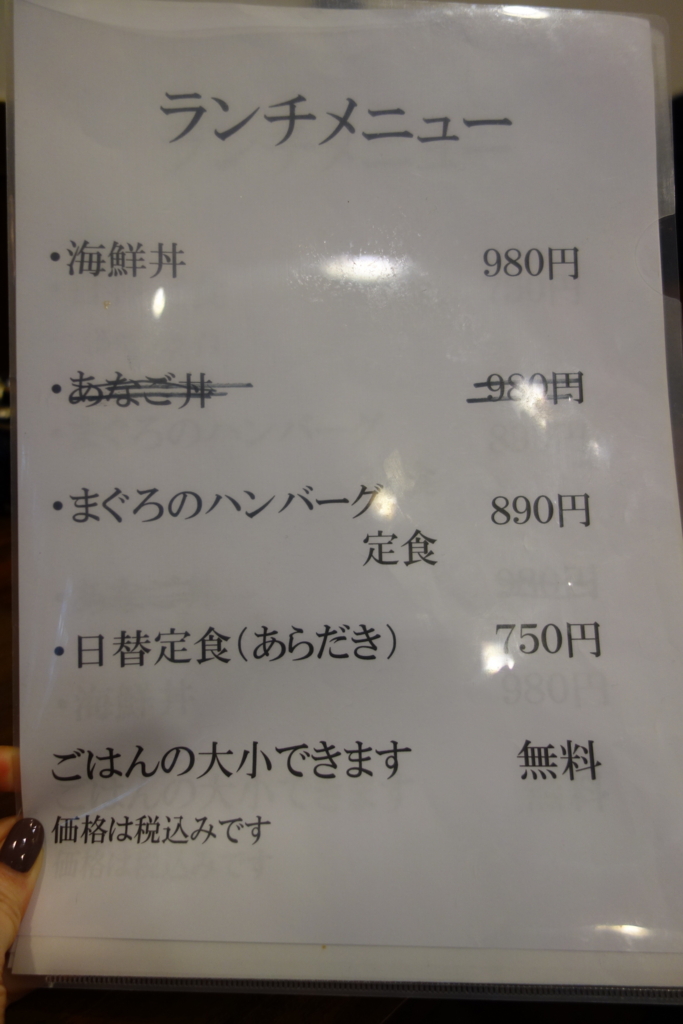 ランチメニュー
・海鮮丼 980円
・あなご丼 980円
・まぐろのハンバーグ 890円
定食
・日替定食(あらだき) 750円
ごはんの大小できます 無料
価格は税込みです